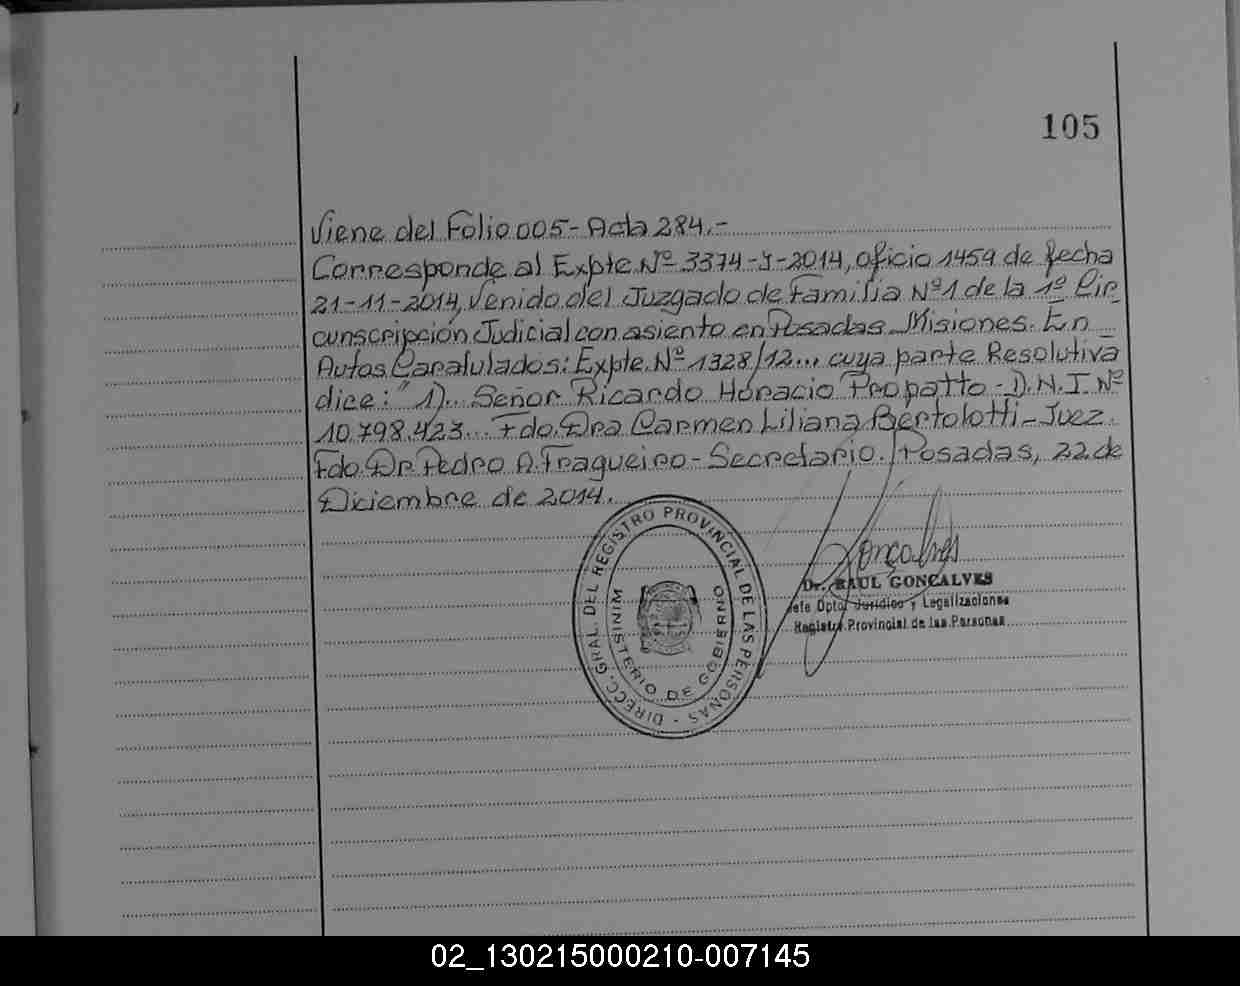 105
Viene del Folio 005-Acta 284.-
Corresponde al Expte.Nº 3374-J-2014, oficio 1459 de fecha
21-11-2014, Venido del Juzgado de Familia Nº1 de la 1º Cir
cunscripción Judicial con asiento en Posadas Misiones. En
Autos Caratulados: Expte.Nº 1328/12... cuya parte Resolutiva
dice: "1)... Señor Ricardo Horacio Propatto-D.N.I.Nº
10.798.423... Fdo. Dra Carmen Liliana Bertolotti-Juez.
Fdo. Dr. Pedro A. Fragueiro-Secretario. Posadas, 22 de
Diciembre de 2014.
DIRECC. GRAL. DEL REGISTRO PROVINCIAL DE LAS PERSONAS -
MINISTERIO DE GOBIERNO
Gonçalves
Dr. RAUL GONCALVES
Jefe Dpto. Jurídico y Legalizaciones
Registro Provincial de las Personas
02_130215000210-007145